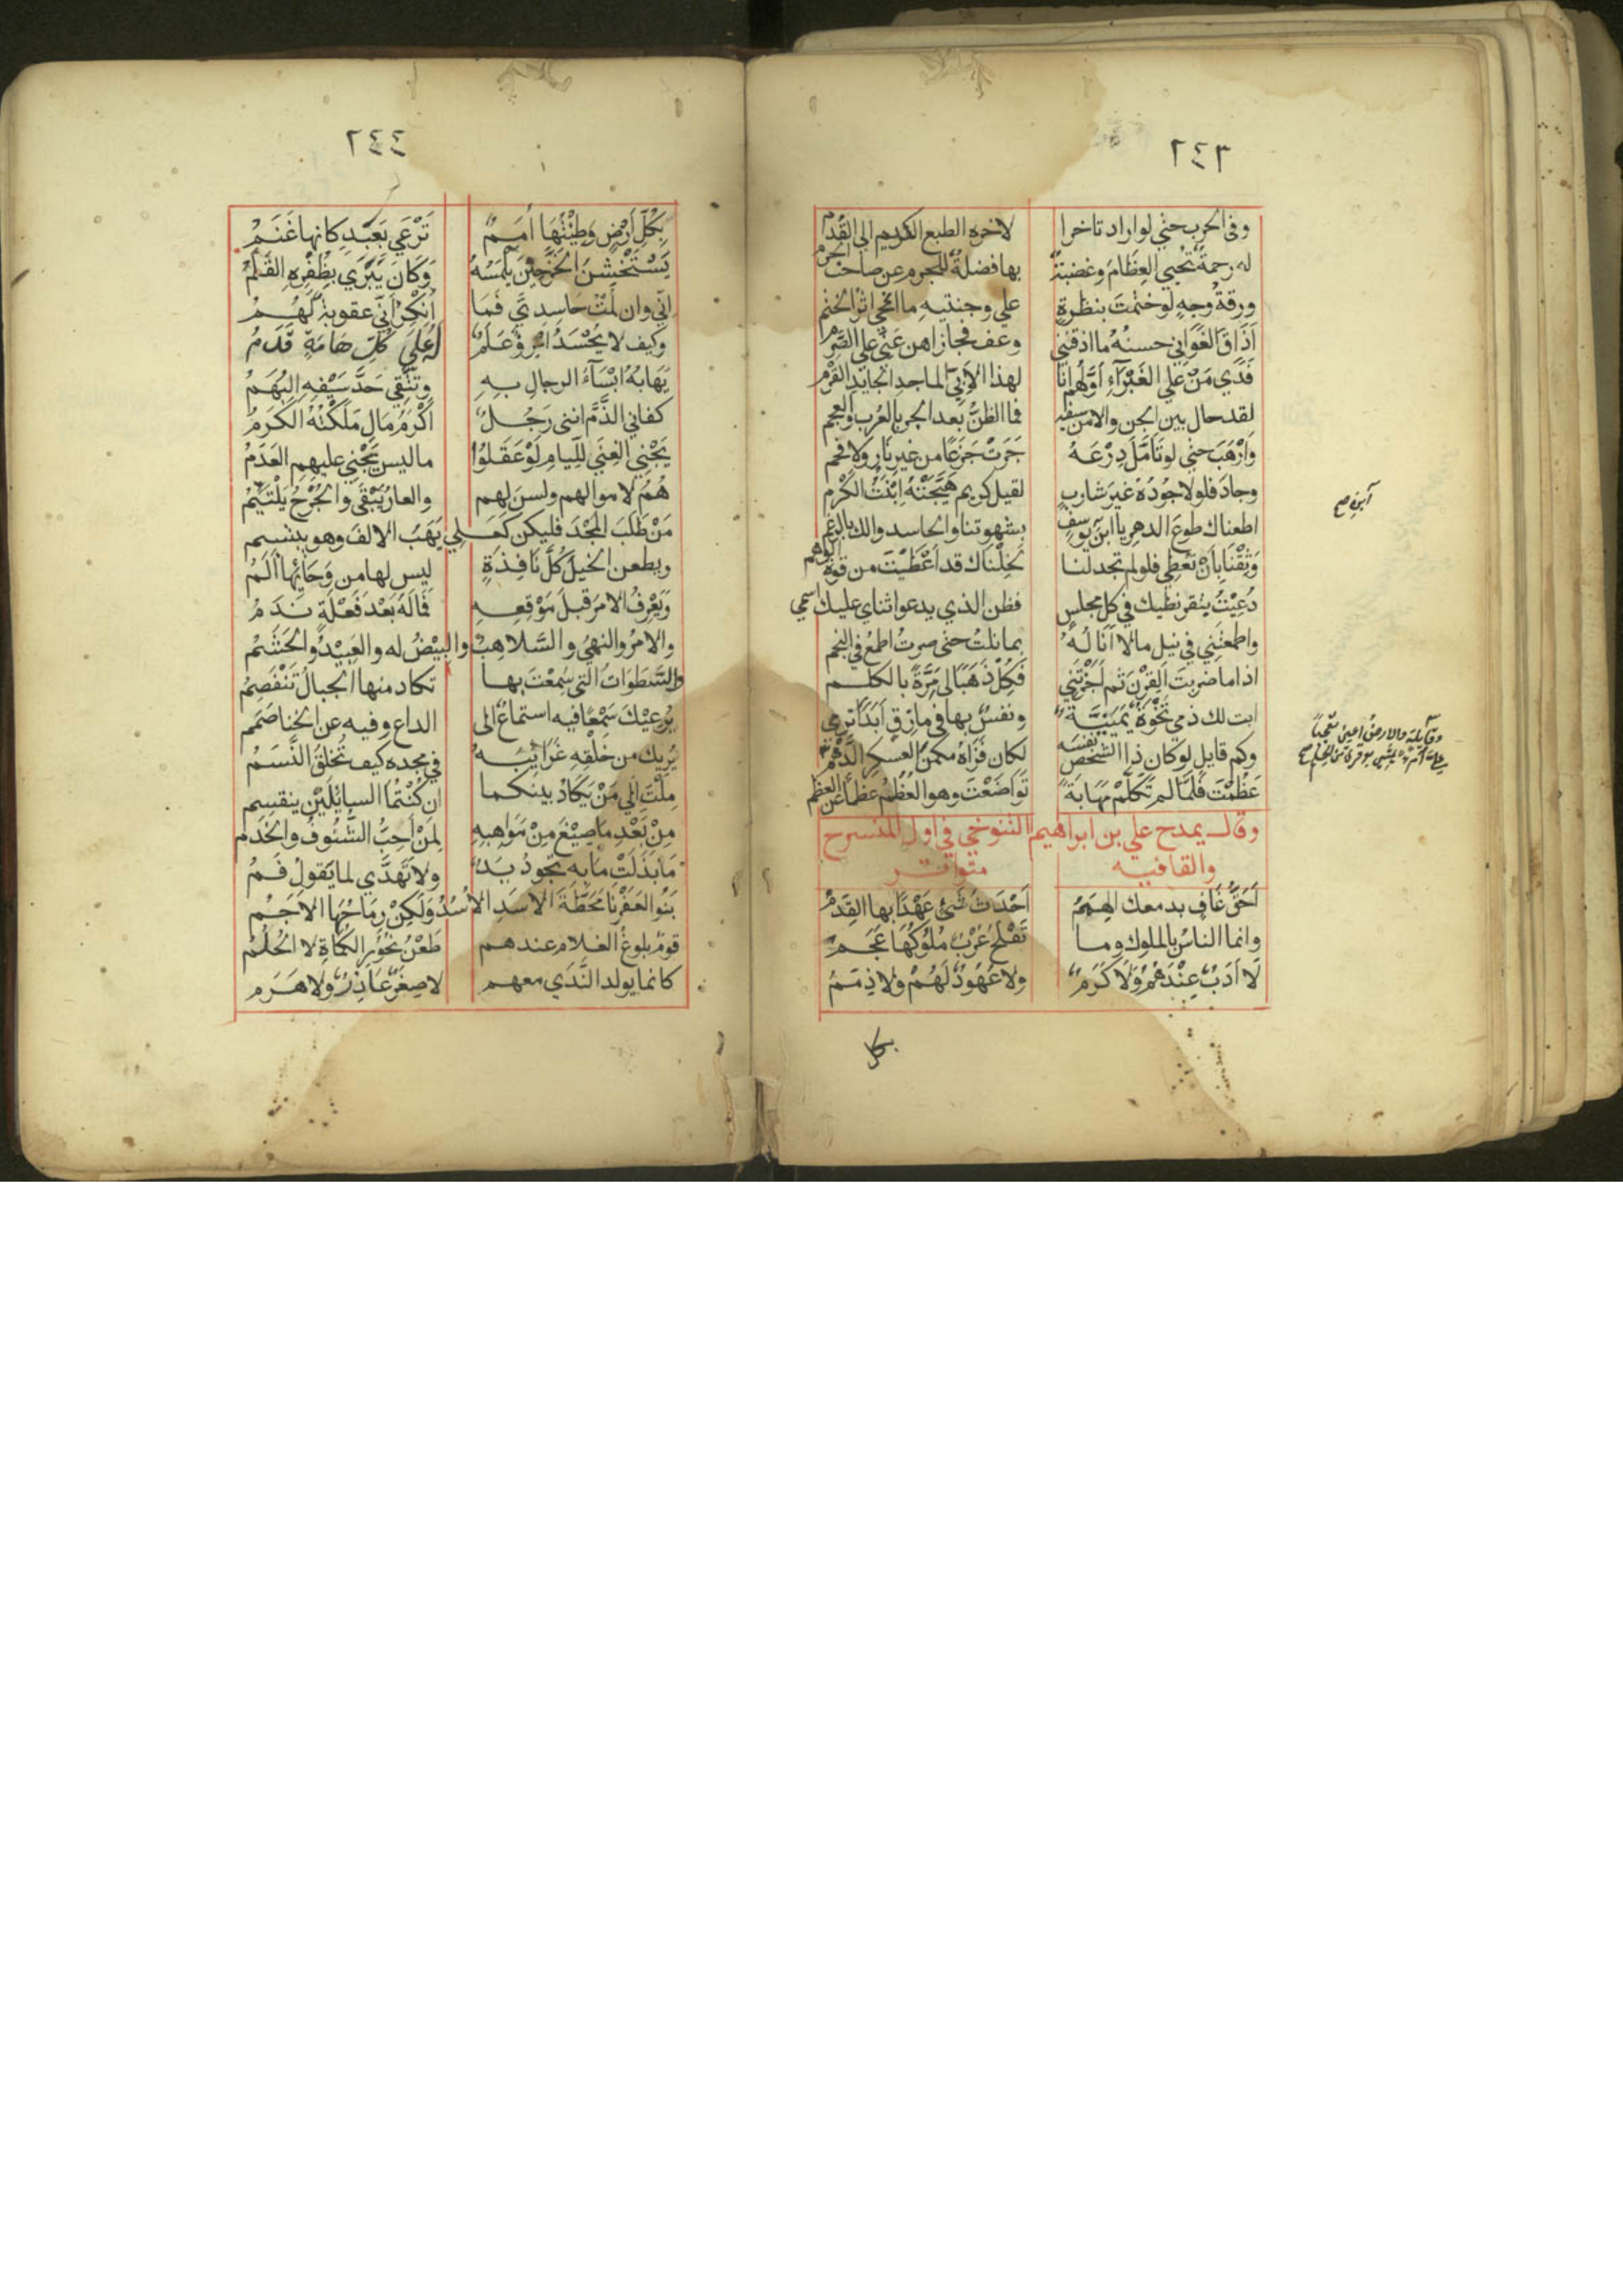 ٢٤٣
وفى الحرب حتي لو اراد تاخرا لاخره الطبع الكريم الي القُدْمِ
له رحمةٌ تُحْيي العِظَامَ وغضبةٌ بها فضلةٌ للجرم عن صاحب الجرم
ورقةُ وجهٍ لو ختمتَ بنظرةٍ علي وجنتيه ما امّحي اثرُ الختم
اَذَاقَ الغَوَاني حسنُهُ ما اذقنني وعف فجازاهن عَنّي علي الصَّرْم
فَدًي مَنْ عَلَي الغَبْرَآءِ اَوَّلُهُم انَا لهذا الاَبِيّ الماجد الجايد القَرْم
لقد حال بين الجن والامن سيفه فما الظنُّ بعد الجن بالعُرب والعجم
وَاَرْهَبَ حتي لو تَأمَّلَ دِرْعَهُ جَرَتْ جَزَعًا من غير نَارٍ ولا فحم
وجادَ فلولا جُودُهُ غيرَ شاربٍ لقيل كريم هَيَّجَتْهُ ابْنَتُ الكَرْم
اطعناك طوعَ الدهر يا ابنَ يوسفٍ بشهوتنا والحاسدوا لك بالرغم
آبن صح
وَثِقْنَا بِاَنْ تُعْطِي فلو لم تجد لنا لخِلْنَاك قد اَعْطَيْتَ من قوة الوهم
دُعِيْتُ بتقريظيك في كل مجلس فظن الذي يدعوا ثناي عليك اسمي
واطمعْتِني في نيل ما لا اَنَالُهُ بما نلتُ حتى صرتُ اطمعُ في النجم
اذا ما ضربتَ القِرْنَ ثم اَجَزْتَني فَكِلْ ذَهَبًا لي مَرَّةً بالكلم
ابت لك ذمي نَخْوَةٌ يَمَنِيَّةٌ ونفسٌ بها في مازقٍ اَبَدًا ترمي
وكم قايلٍ لو كان ذا الشخص نفسَه لكان قَرَاهُ مكمن العسكر الدَّهْمِ
عَظُمْتَ فَلَمَّا لم تَكَلَّمْ مَهَابَةً تَوَاضَعْتَ وهو العُظْمُ عظمًا عن العظم
وقال يمدح علي بن ابراهيم التنوخي في اول المنسرح
والقافيه متواتر
اَحَقُّ عَافٍ بدمعك الهِمَمُ اَحْدَثُ شَيْءٍ عَهْدًا بها القِدَمُ
وانما الناسُ بالملوك وما تَفْلَحُ عُرْبٌ مُلُوْكُهَا عَجَمُ
لَا اَدَبٌ عِنْدَهُمْ وَلَا كَرَمٌ ولا عُهُودٌ لَهُمْ ولا ذِمَمُ
بكل
٢٤٤
بِكُلِّ اَرْضٍ وَطِئْتُهَا اُمَمٌ تُرْعَي بِعَبْدٍ كانها غَنَمُ
يَسْتَخْشِنُ الخَزَّ حِيْنَ يَلْمَسُهُ وَكَانَ يُبْرَي بِظُفْرِهِ القَلَمُ
اِنّي وان لُمْتُ حَاسِدِيَّ فَمَا اُنْكِرُ اَنّي عقوبةٌ لَهُمُ
وكيف لا يُحْسَدُ امرؤٌ عَلَمٌ لَهُ عَلَي كُلِّ هَامَةٍ قَدَمُ
يَهَابُهُ ابْسَآءُ الرجالِ بِهِ وتَتَّقِي حَدَّ سَيْفِهِ البُهَمُ
كفاني الذَّمَّ انني رَجُلٌ اَكْرَمُ مَالٍ مَلَكْتُهُ الكَرَمُ
يَجْنِي الغِنَي للِّيامِ لَوْ عَقَلُوْا ما ليس يَجْنِي عليهم العَدَمُ
هُمُ لاموالهم ولسنَ لهم والعارُ يَبْقَي والجُرْحُ يَلْتَئِمُ
مَنْ طَلَبَ المجْدَ فليكن كَعَلِي يَهَبُ الالفَ وهو يبتسم
ويطعن الخيلَ كُلَّ نَافِذَةٍ ليس لها من وَحَائِهَا اَلَمُ
وَيَعْرِفُ الامرَ قبلَ مَوْقِعِهِ فَمَا لَهُ بَعْدَ فَعْلَةٍ نَدَمُ
والامرُ والنهيُ والسَّلاهِبُ والبِيْضُ له والعَبِيْدُ والحَشَمُ
والسَّطَوَاتُ التي سُمِعْتَ بها تكاد منها الجبالُ تَنْفَصِمُ
يُرْعِيْكَ سَمْعًا فيه استماعٌ الى الداعِ وفيه عن الخنا صَمَم
يُرِيك من خَلْقِهِ غَرَائِبَهُ في مجده كيف تُخلقُ النَّسَمُ
مِلْتَ الي مَنْ يَكَادُ بينكما ان كُنْتُمَا السايلَيْنِ ينقسِم
مِنْ بَعْدِ ما صِيْغَ مِنْ مَوَاهِبِهِ لِمَنْ اُحِبُّ الشُّنُوفُ والخَدَم
مَا بَذَلَتْ مَا به يجودُ يَدٌ ولا تَهَدَّي لما يَقولُ فَمُ
بَنُو العَفَرْنَا مَحَطَّةَ الاسَدِ الاُسْدُ وَلَكِنْ رِمَاحُهَا الاَجَمُ
قومٌ بلوغُ الغلامِ عندهم طَعْنُ نُحُورِ الكُمَاةِ لا الحُلُمُ
كانما يولد النَّدَي معهم لا صِغَرٌ عَاذِرٌ ولا هَرَم